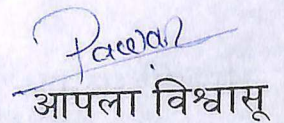 Pawar
आपला विश्वासू